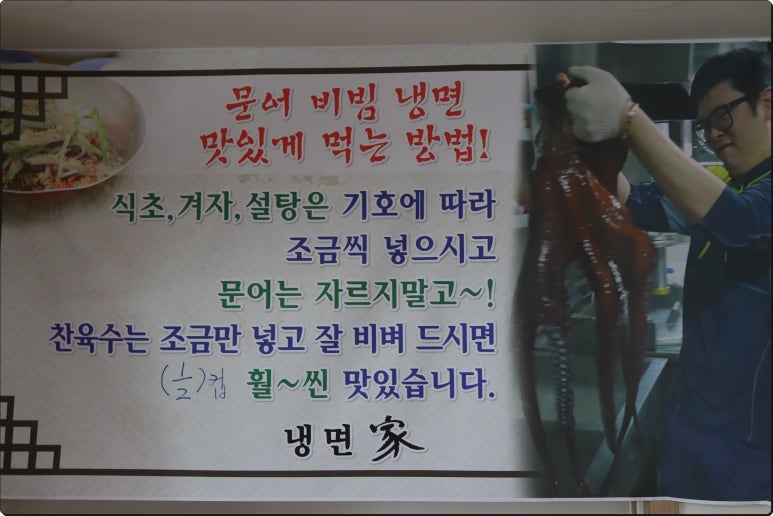 문어 비빔 냉면
맛있게 먹는 방법!
식초,겨자,설탕은 기호에 따라
조금씩 넣으시고
문어는 자르지말고~!
찬육수는 조금만 넣고 잘 비벼 드시면
(½)컵 훨~씬 맛있습니다.
냉면 家